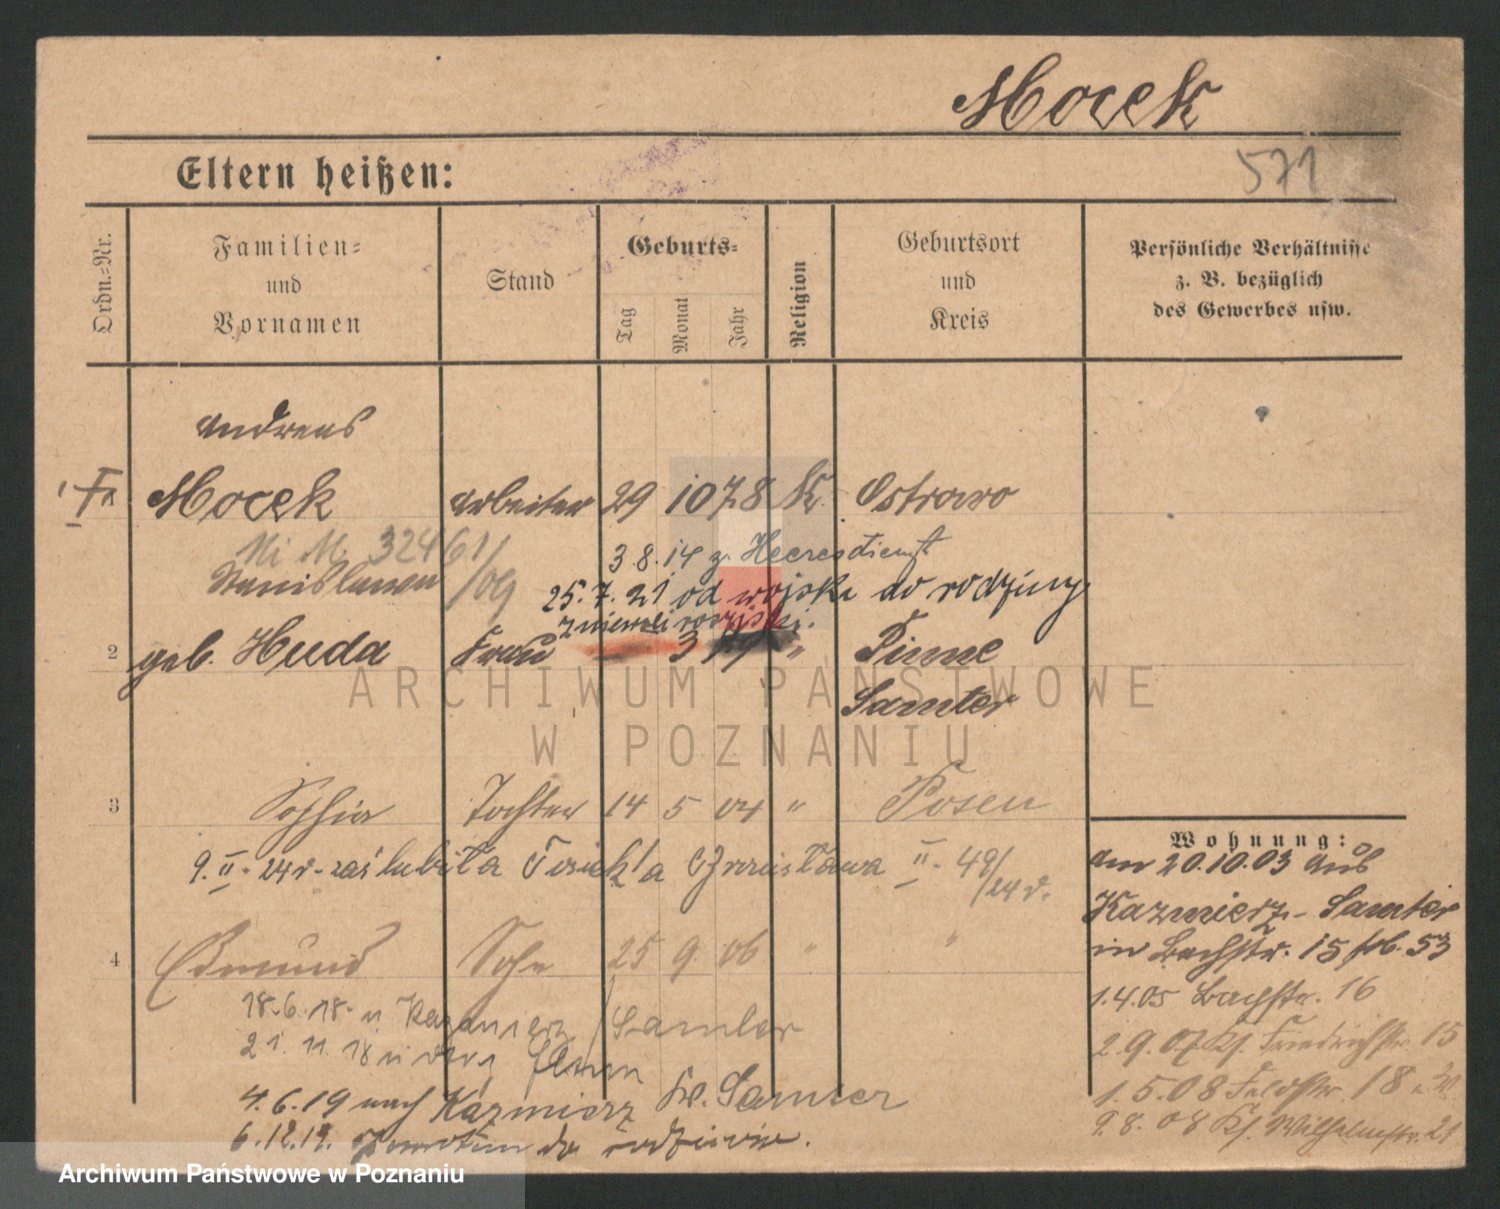 Mocek
Eltern heißen:
571
Ordn.-Nr.
Familien-
und
Vornamen
Stand
Geburts-
Tag
Monat
Jahr
Religion
Geburtsort
und
Kreis
Persönliche Verhältnisse
z. B. bezüglich
des Gewerbes usw.
Andreas
Mocek Arbeiter 29 10 78 K. Ostrowo
32461/
3.8.14 z. Heeresdienst
Stanislawa
25.7.21 od wojska do rodziny
z niewoli rosyjski.
2 geb. Huda Frau 3 79 " Pinne
Samter
ARCHIWUM PAŃSTWOWE
W POZNANIU
3 Sophia Tochter 14 5 04 " Posen
9.II.24 r. zaślubiła Czesława II. 49/24 r.
4 Edmund Sohn 25 9 06 " "
18.6.18. n Kazmierz / Samter
21.11.18
4.6.19 nach Kazmierz Kr. Samter
6.12.19. do
Wohnung:
Am 20.10.03 aus
Kazmierz - Samter
in Bachstr. 15 53
1.4.05 Bachstr. 16
2.9.07 Kf. Friedrichstr. 15
1.5.08 Feldstr. 18
9.8.08 Kf. Wilhelmstr. 21
Archiwum Państwowe w Poznaniu